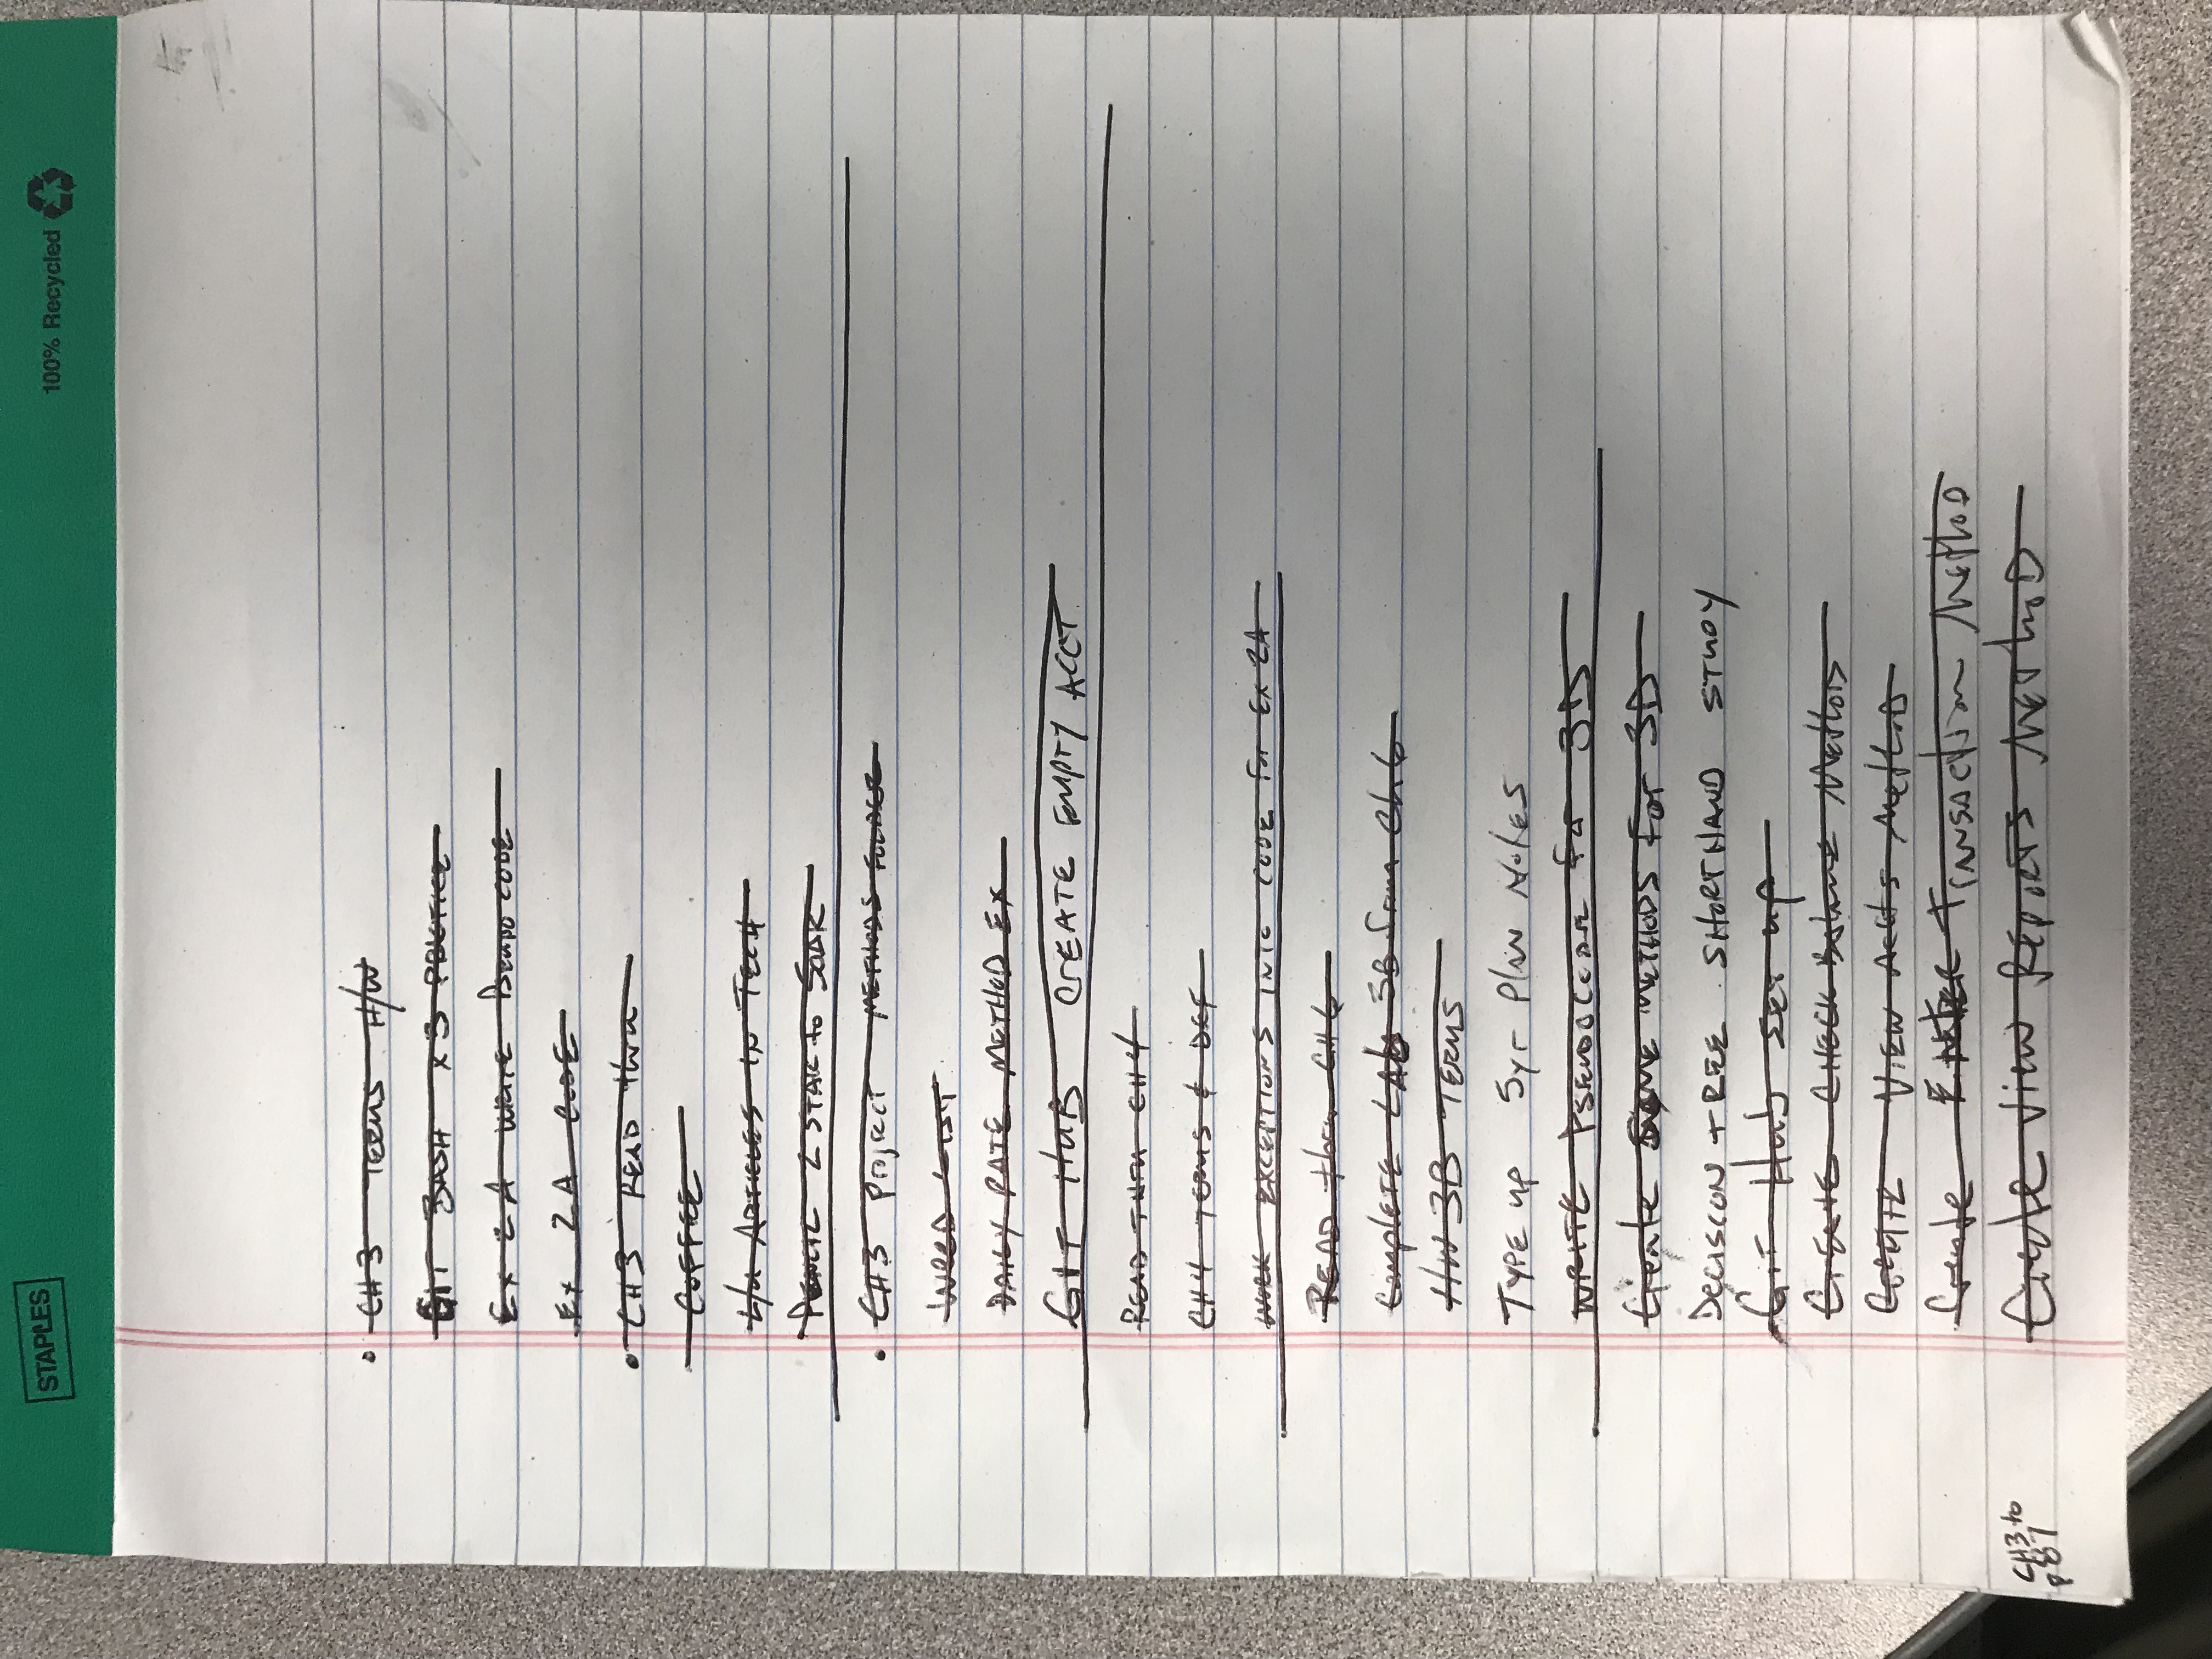 STAPLES
100% Recycled
• CH3 TERMS H/W
GIT BASH x 3 PRCTICE
Ex 2A WRITE CODE
Ex 2A CODE
• CH3 READ thru
COFFEE
L/U ARTICLES IN TECH
PENCIL 2 STAR to
• CH3 Project METHODS FOLDER
LIST
DAILY RATE METHOD EX
GIT HUB CREATE EMPTY ACCT.
READ THRU CH4
CH4 TERMS & DEF
WORK EXCEPTIONS INTO CODE For EX 2A
READ thru CH6
Complete LAb 3B from Ch6
HW 3B TERMS
TYPE up 5yr Plan Notes
WRITE PSEUDOCODE For 3D
Create SOME METHODS For 3D
DECISION TREE SHORTHAND STUDY
GIT Hub SET up
CREATE CHECK Balance Method
CREATE VIEW Accts Method
Create ENTER TRANSACTION METHOD
Create View REPORTS METHOD
CH3 to
p87